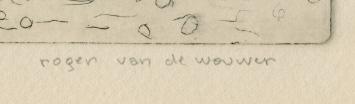 roger van de wouwer